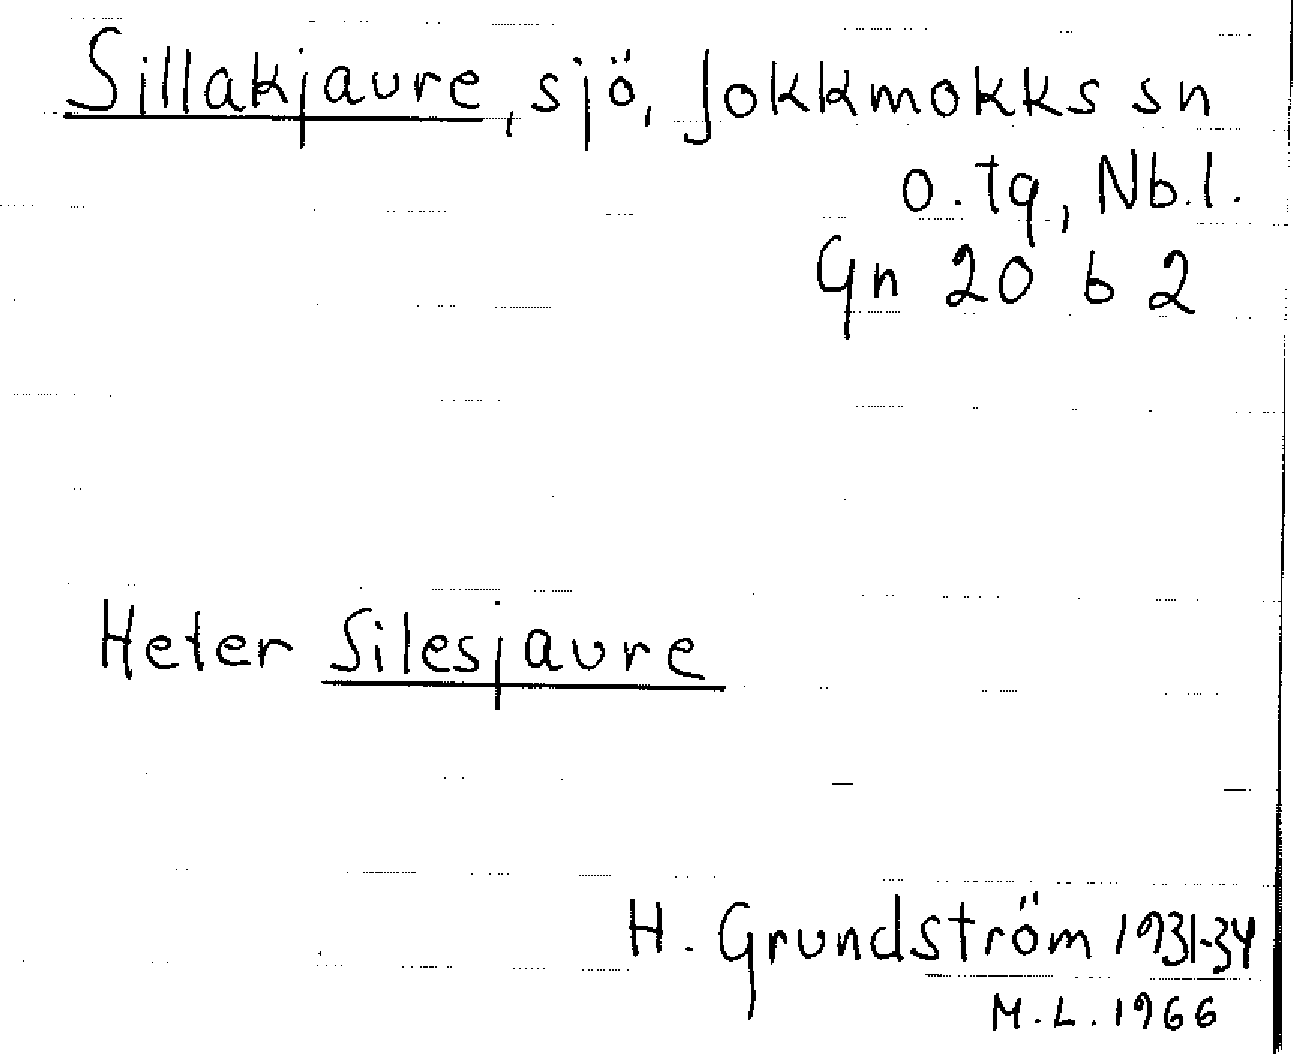 Sillakjaure, sjö, Jokkmokks sn
o. tg, Nb.l.
Gn 20 b 2
Heter Silesjaure
H. Grundström 1931-34
M.L. 1966